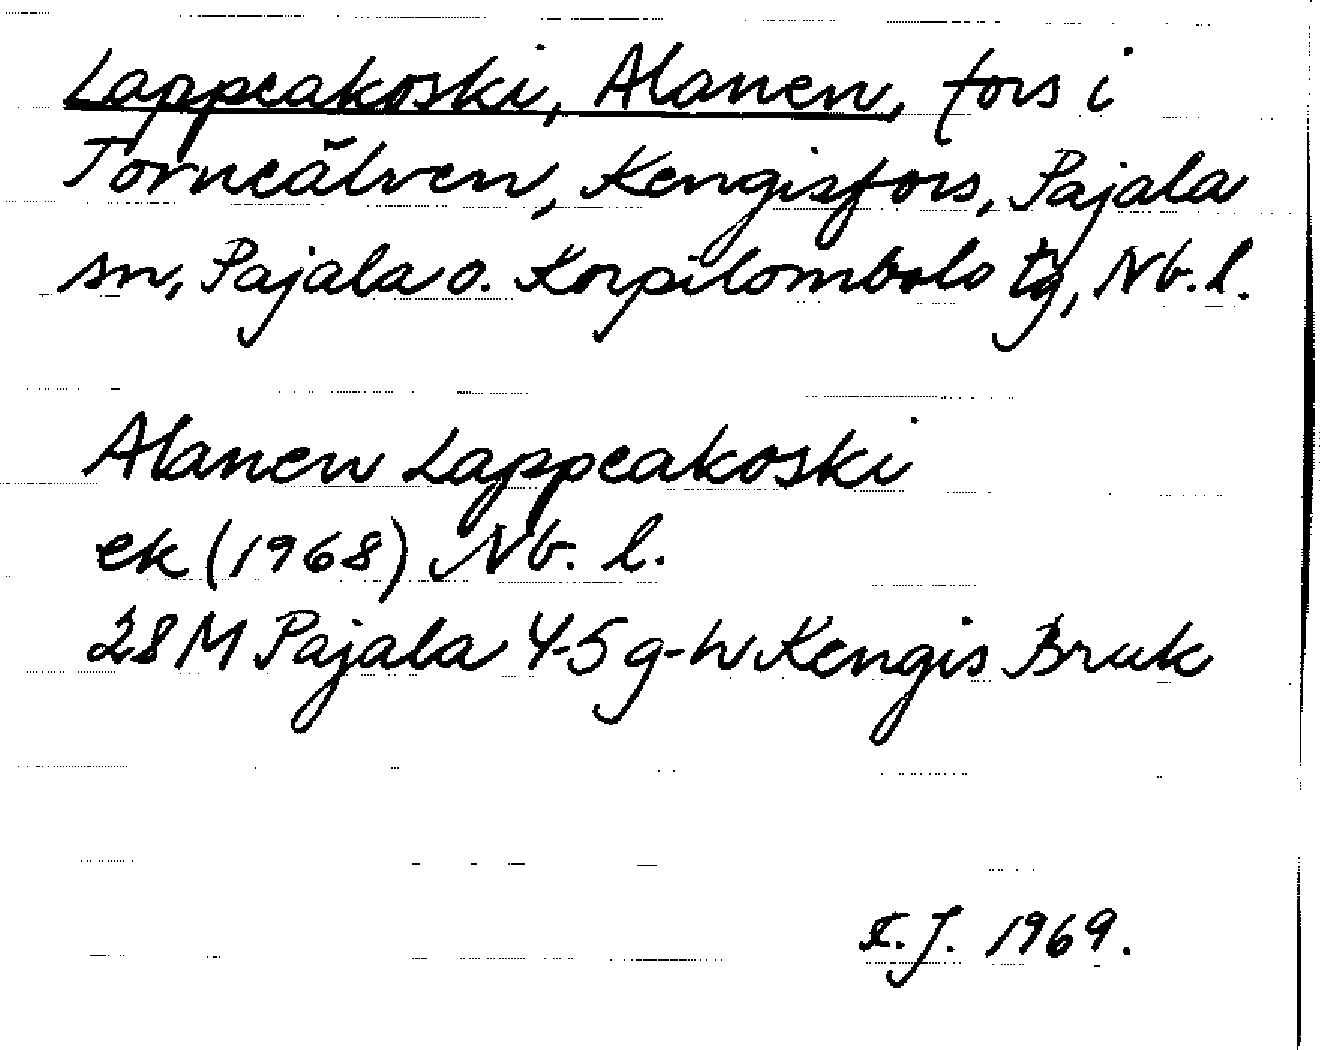 Lappeakoski, Alanen, fors i
Torneälven, Kengisfors, Pajala
sn, Pajala o. Korpilombolo tg, Nb. l.
Alanen Lappeakoski
ek (1968) Nb. l.
28 M Pajala 4-5 g-h Kengis Bruk
E. J. 1969.